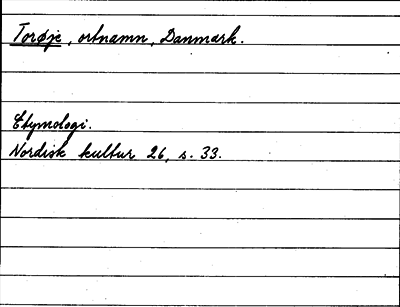 Torøje, ortnamn, Danmark.
Etymologi.
Nordisk kultur 26, s. 33.